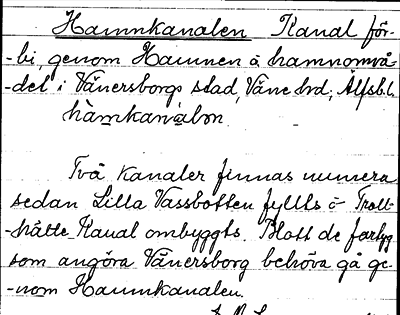 Hamnkanalen Kanal för-
-bi, genom Hamnen å hamnområ-
-det i Vänersborgs stad, Väne hd, Älfsb.l.
hàmkanàlən
Två kanaler finnas numera
sedan Lilla Vassbotten fyllts o Troll-
-hätte Kanal ombyggts. Blott de fartyg
som angöra Vänersborg behöva gå ge-
-nom Hamnkanalen.